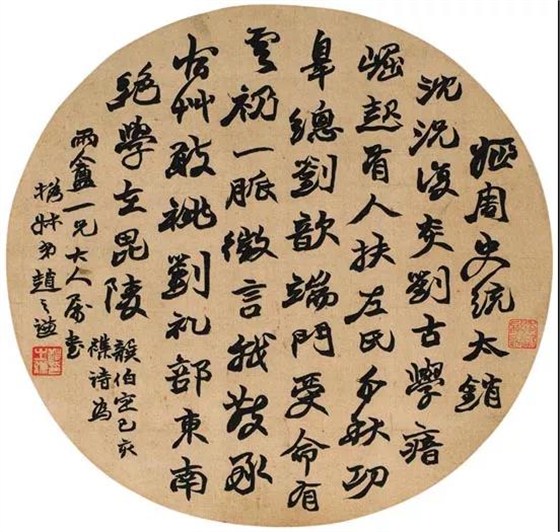 姬周史統太銷
沈況復炎劉古學瘖
崛起有人扶左氏千秋功
辠總劉歆端門受命有
雲礽一脈微言我敬承
宿艸敢祧劉礼部東南
絕學在毘陵
龔伯定己亥
襍詩為
雨龕一兄大人屬書
撝叔弟趙之謙